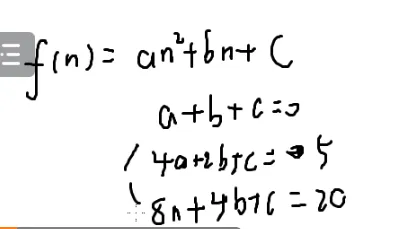 f(n) = an²+bn+C
a+b+c=0
4a+2b+c= 5
8n+4b+c=20